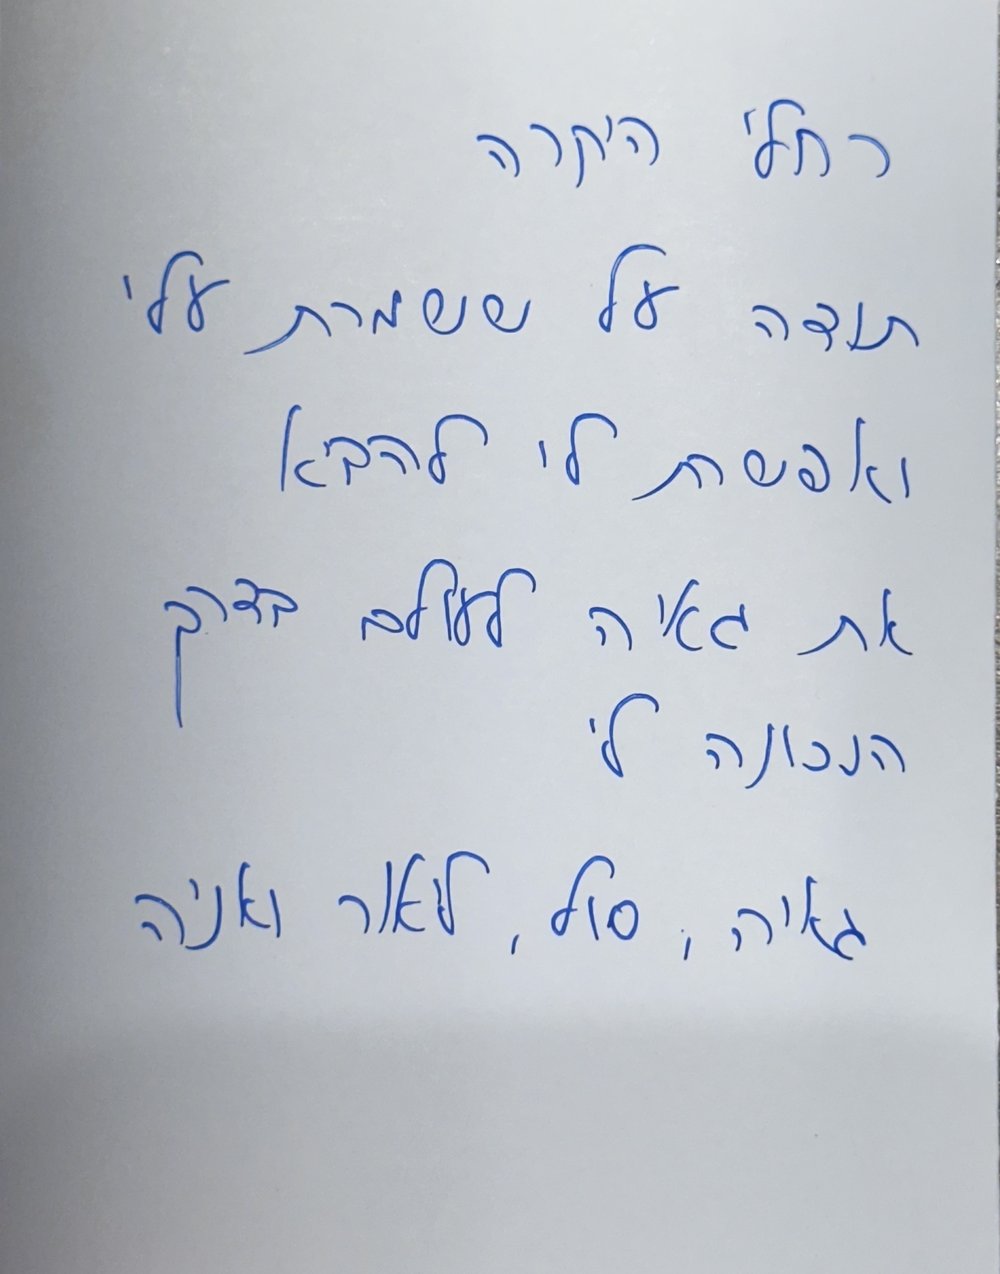 רחלי היקרה
תודה על ששמרת עלי
ואפשרת לי להביא
את גאיה לעולם בדרך
הנכונה לי
גאיה, סול, ליאור ואניה